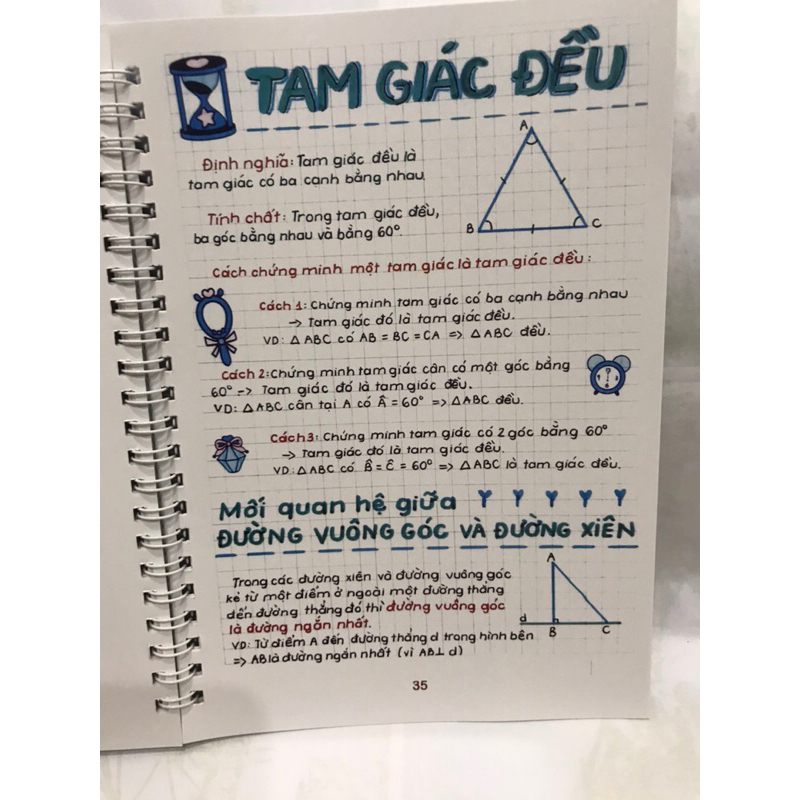 TAM GIÁC ĐỀU
Định nghĩa: Tam giác đều là
tam giác có ba cạnh bằng nhau.
Tính chất: Trong tam giác đều,
ba góc bằng nhau và bằng 60°.
A
B
C
Cách chứng minh một tam giác là tam giác đều:
Cách 1: Chứng minh tam giác có ba cạnh bằng nhau
→ Tam giác đó là tam giác đều.
VD: △ ABC có AB = BC = CA => △ ABC đều.
Cách 2: Chứng minh tam giác cân có một góc bằng
60° → Tam giác đó là tam giác đều.
VD: △ ABC cân tại A có Â = 60° => △ ABC đều.
Cách 3: Chứng minh tam giác có 2 góc bằng 60°
→ Tam giác đó là tam giác đều.
VD: △ ABC có B̂ = Ĉ = 60° => △ ABC là tam giác đều.
Mối quan hệ giữa
ĐƯỜNG VUÔNG GÓC VÀ ĐƯỜNG XIÊN
Trong các đường xiên và đường vuông góc
kẻ từ một điểm ở ngoài một đường thẳng
đến đường thẳng đó thì đường vuông góc
là đường ngắn nhất.
VD: Từ điểm A đến đường thẳng d trong hình bên
=> AB là đường ngắn nhất (vì AB⊥ d)
A
d
B
C
35